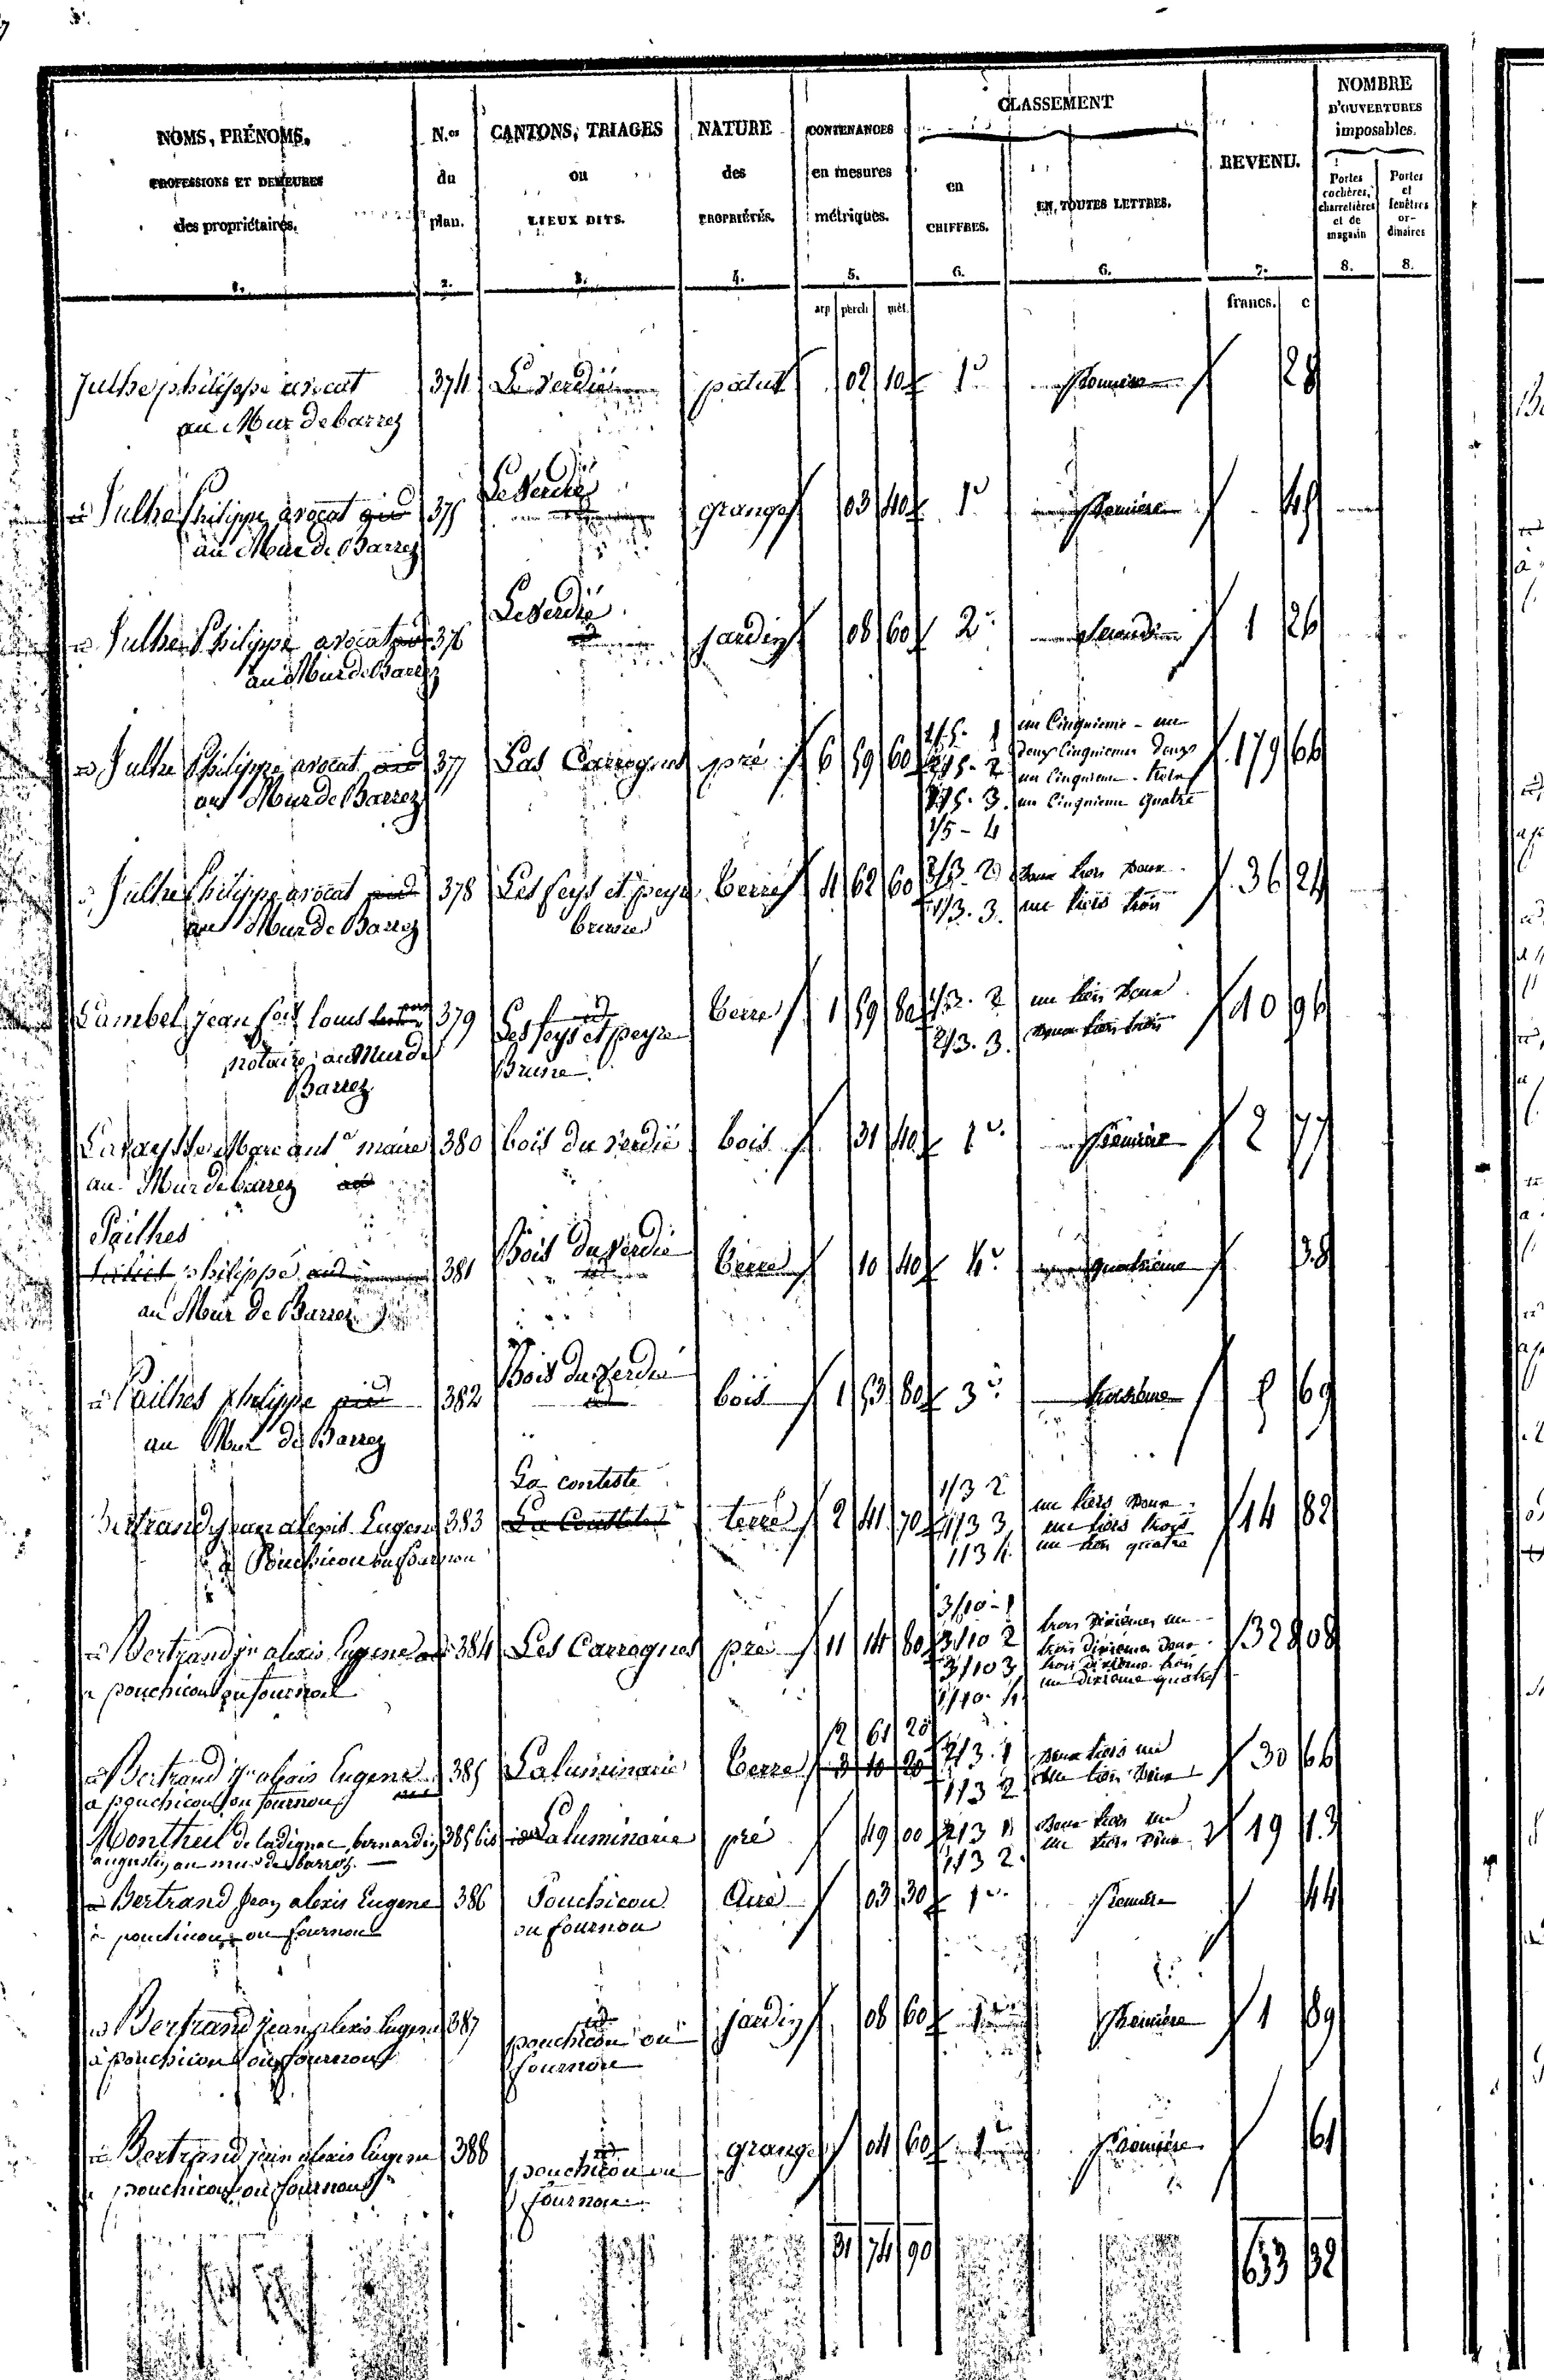 NOMS, PRÉNOMS, PROFESSIONS ET DEMEURES des propriétaires. N.os du plan. CANTONS, TRIAGES ou LIEUX DITS. NATURE des PROPRIÉTÉS. CONTENANCES en mesures métriques. CLASSEMENT en CHIFFRES. EN TOUTES LETTRES. REVENU. NOMBRE D'OUVERTURES imposables. Portes cochères, charretières et de magasin Portes et fenêtres ordinaires
1. 2. 3. 4. 5. 6. 6. 7. 8. 8.
arp perch mèt. francs. c
Julhe philippe avocat 374 Le Verdié patus 02 10 1e Première 28
au Mur de barrez
Julhe Philippe avocat 375 Le Verdié grange 03 40 1e Première 45
au Mur de Barrez
Julhe Philippe avocat 376 Le Verdié jardin 08 60 2e Seconde 1 26
au Mur de Barrez
Julhe Philippe avocat 377 Las Carrognes pré 6 59 60 1/5 - 1 un Cinquieme - un 179 66
au Mur de Barrez 2/5 - 2 deux Cinquiemes deux
1/5 - 3 un Cinquieme - trois
1/5 - 4 un Cinquieme Quatre
Julhe Philippe avocat 378 Les feys et peyre terre 4 62 60 2/3 - 2 Deux tiers Deux 36 24
au Mur de Barrez brune 1/3 - 3 un tiers trois
Cambel jean fois louis 379 id terre 1 59 80 1/3 - 2 un tiers Deux 40 96
notaire au Mur de Les feys et peyre 2/3 - 3 Deux tiers trois
Barrez Brune
marc antne maire 380 bois du verdié bois 31 40 1e Première 2 77
au Mur de barrez
Pailhès
philippe 381 Bois du Verdié terre 10 40 4e quatrieme 38
au Mur de Barrez
Pailhès philippe 382 Bois du Verdié bois 1 53 80 3e troisième 5 69
au Mur de Barrez id
La conteste
Bertrand jean alexis Eugene 383 terre 2 41 70 1/3 2 un tiers Deux 14 82
à Pouchicou ou fournou 1/3 3 un tiers trois
1/3 4 un tiers quatre
Bertrand jn alexis Eugene 384 Les Carrognes pré 11 14 80 3/10 - 1 trois Dixièmes un 328 08
a pouchicou ou fournou 3/10 2 trois dixièmes Deux
3/10 3 trois dixième trois
1/10 - 4 un dixième quatre
2 61 20
Bertrand jn alexis Eugene 385 Laluminarie terre 3 10 20 2/3 - 1 Deux tiers un 30 66
a pouchicou ou fournou 1/3 2 un tiers Deux
Montheil de ladignac bernardin 385 bis Laluminarie pré 49 00 2/3 1 Deux tiers un 19 13
augustin au mur de barrez 1/3 2 un tiers Deux
Bertrand jean alexis Eugene 386 Pouchicou Aire 03 30 1e Première 44
à pouchicou ou fournou ou fournou
Bertrand jean alexis Eugene 387 id jardin 08 60 1e Première 1 89
à pouchicou ou fournou pouchicou ou
fournou
Bertrand jean alexis Eugene 388 id grange 04 60 1e Première 61
pouchicou ou fournou pouchicou ou
fournou
31 74 90 653 32